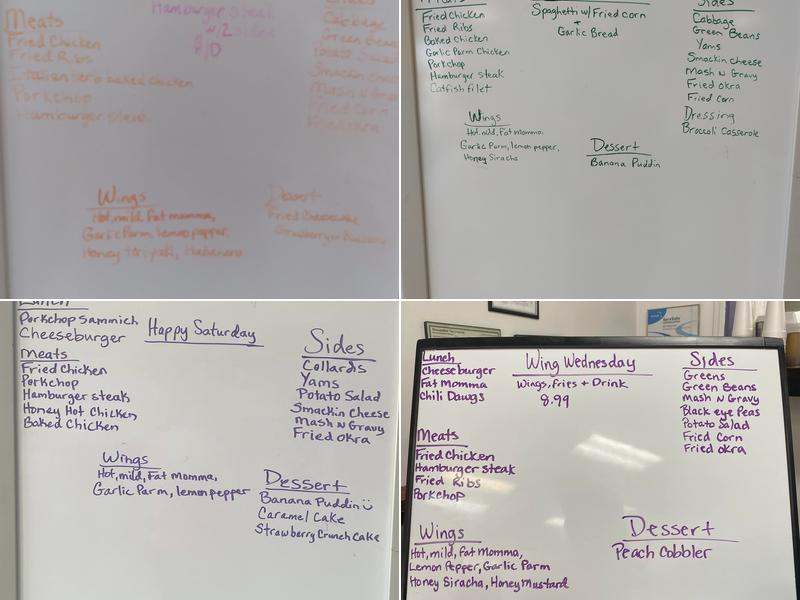 Hamburger steak
w/2 sides
Meats
Fried Chicken
Fried Ribs
Italian zero baked chicken
Porkchop
Hamburger steak
Sides
Cabbage
Green Beans
Potato Salad
Smackin Cheese
Mash N Gravy
Fried Corn
Fried okra
Wings
Hot, mild, Fat momma,
Garlic Parm, lemon pepper,
Honey Teriyaki, Habanero
Dessert
Fried Cheesecake
Strawberry
Meats
Fried Chicken
Fried Ribs
Baked Chicken
Garlic Parm Chicken
Porkchop
Hamburger steak
Catfish filet
Spaghetti w/Fried corn
+
Garlic Bread
Sides
Cabbage
Green Beans
Yams
Smackin Cheese
Mash N Gravy
Fried okra
Fried Corn
Dressing
Broccoli Casserole
Wings
Hot, mild, Fat Momma,
Garlic Parm, lemon pepper,
Honey Siracha
Dessert
Banana Puddin
Lunch
Porkchop Sammich
Cheeseburger
Meats
Fried Chicken
Porkchop
Hamburger steak
Honey Hot Chicken
Baked Chicken
Happy Saturday
Sides
Collards
Yams
Potato Salad
Smackin Cheese
Mash N Gravy
Fried Okra
Wings
Hot, mild, Fat Momma,
Garlic Parm, lemon pepper
Dessert
Banana Puddin
Caramel Cake
Strawberry Crunch Cake
Lunch
Cheeseburger
Fat Momma
Chili Dawgs
Meats
Fried Chicken
Hamburger steak
Fried Ribs
Porkchop
Wing Wednesday
Wings, fries + Drink
8.99
Sides
Greens
Green Beans
Mash N Gravy
Black eye Peas
Potato Salad
Fried Corn
Fried okra
Wings
Hot, mild, Fat Momma,
Lemon Pepper, Garlic Parm
Honey Siracha, Honey Mustard
Dessert
Peach Cobbler